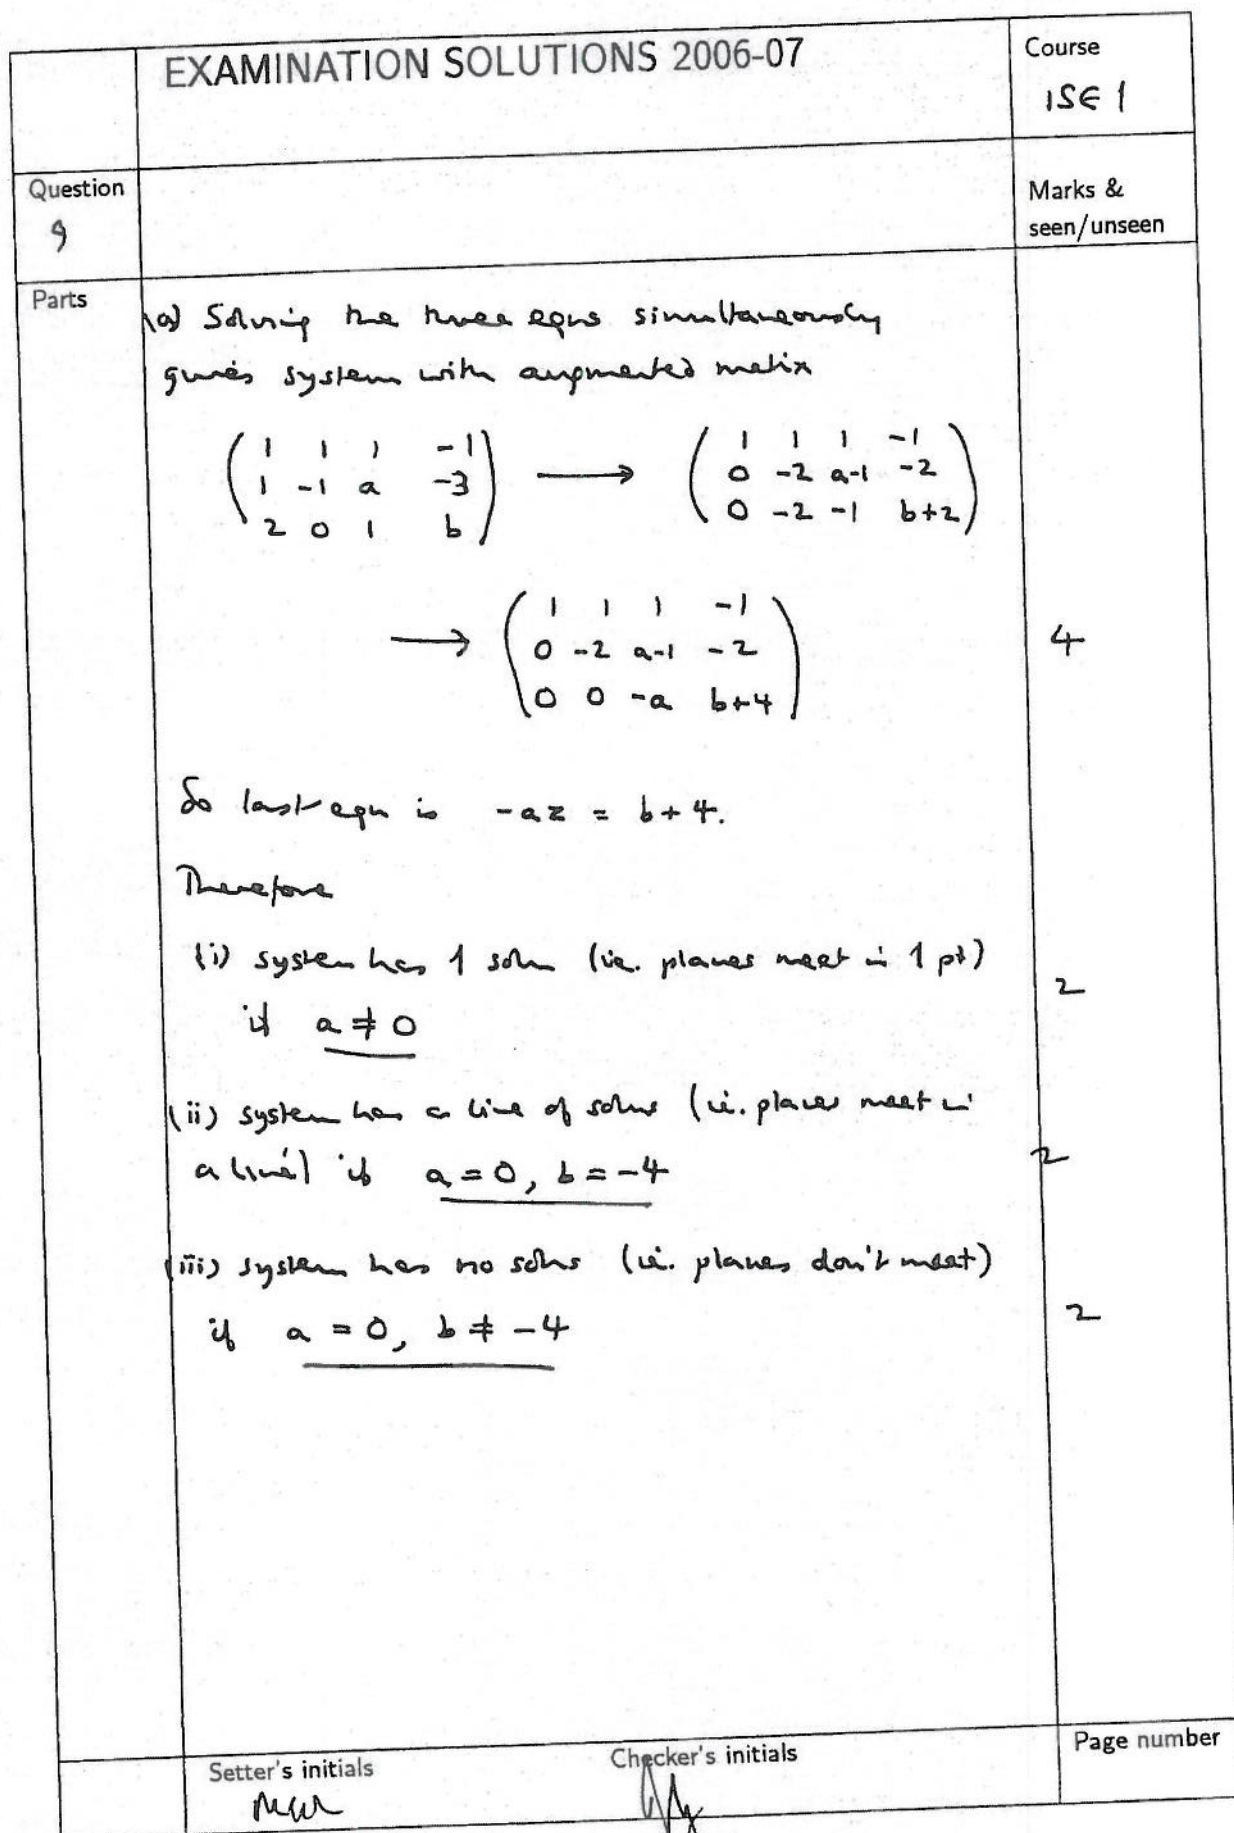 EXAMINATION SOLUTIONS 2006-07
Course
ISE 1
Question
9
Marks &
seen/unseen
Parts
(a) Solving the three eqns simultaneously
gives system with augmented matrix
( 1 1 1 -1 ; 1 -1 a -3 ; 2 0 1 b ) → ( 1 1 1 -1 ; 0 -2 a-1 -2 ; 0 -2 -1 b+2 )
→ ( 1 1 1 -1 ; 0 -2 a-1 -2 ; 0 0 -a b+4 )
4
So last eqn is -az = b+4.
Therefore
(i) system has 1 soln (i.e. planes meet in 1 pt)
if a ≠ 0
2
(ii) system has a line of solns (i.e. planes meet in
a line) if a = 0, b = -4
2
(iii) system has no solns (i.e. planes don't meet)
if a = 0, b ≠ -4
2
Setter's initials
Checker's initials
Page number